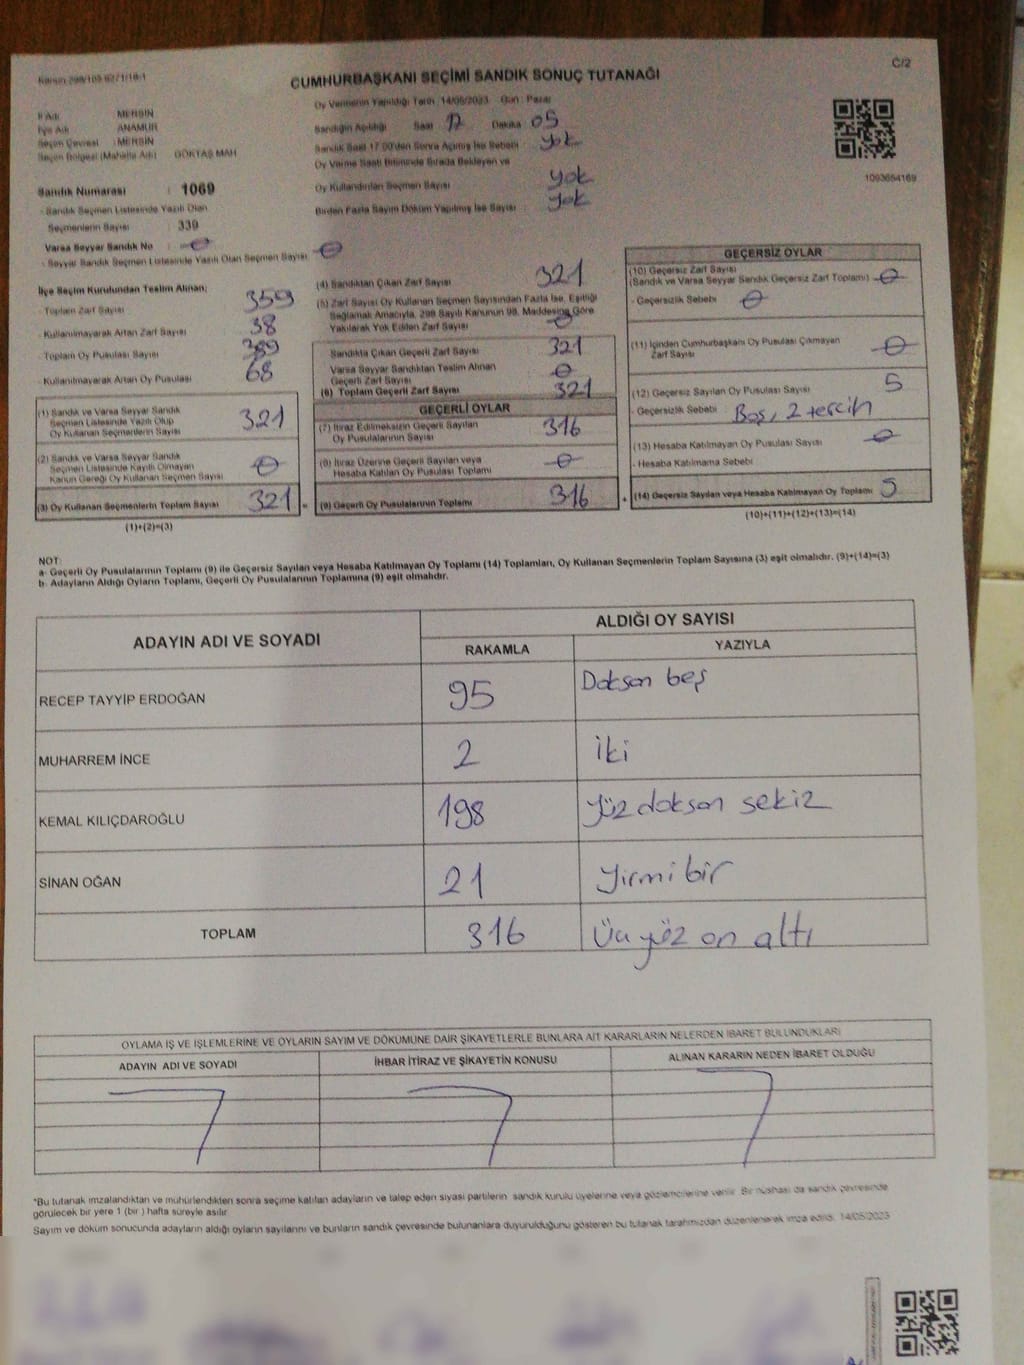 Kanun 298/105-82/1/18-1
C/2
CUMHURBAŞKANI SEÇİMİ SANDIK SONUÇ TUTANAĞI
İl Adı MERSİN
İlçe Adı ANAMUR
Seçim Çevresi : MERSİN
Seçim Bölgesi (Mahalle Adı) GÖKTAŞ MAH
Sandık Numarası : 1069
- Sandık Seçmen Listesinde Yazılı Olan
Seçmenlerin Sayısı : 339
Varsa Seyyar Sandık No :
- Seyyar Sandık Seçmen Listesinde Yazılı Olan Seçmen Sayısı
Oy Vermenin Yapıldığı Tarih 14/05/2023 Gün : Pazar
Sandığın Açıldığı Saat 17 Dakika 05
Sandık Saat 17.00'den Sonra Açılmış İse Sebebi yok
Oy Verme Saati Bitiminde Sırada Bekleyen ve
Oy Kullandırılan Seçmen Sayısı yok
Birden Fazla Sayım Döküm Yapılmış İse Sayısı : yok
1093684169
İlçe Seçim Kurulundan Teslim Alınan;
- Toplam Zarf Sayısı 359
- Kullanılmayarak Artan Zarf Sayısı 38
- Toplam Oy Pusulası Sayısı 389
- Kullanılmayarak Artan Oy Pusulası 68
(1) Sandık ve Varsa Seyyar Sandık
Seçmen Listesinde Yazılı Olup
Oy Kullanan Seçmenlerin Sayısı 321
(2) Sandık ve Varsa Seyyar Sandık
Seçmen Listesinde Kayıtlı Olmayan
Kanun Gereği Oy Kullanan Seçmen Sayısı 0
(3) Oy Kullanan Seçmenlerin Toplam Sayısı 321 =
(1)+(2)=(3)
(4) Sandıktan Çıkan Zarf Sayısı 321
(5) Zarf Sayısı Oy Kullanan Seçmen Sayısından Fazla İse, Eşitliği
Sağlamak Amacıyla, 298 Sayılı Kanunun 98. Maddesine Göre
Yakılarak Yok Edilen Zarf Sayısı 0
Sandıkta Çıkan Geçerli Zarf Sayısı 321
Varsa Seyyar Sandıktan Teslim Alınan
Geçerli Zarf Sayısı 0
(6) Toplam Geçerli Zarf Sayısı 321
GEÇERLİ OYLAR
(7) İtiraz Edilmeksizin Geçerli Sayılan
Oy Pusulalarının Sayısı 316
(8) İtiraz Üzerine Geçerli Sayılan veya
Hesaba Katılan Oy Pusulası Toplamı 0
(9) Geçerli Oy Pusulalarının Toplamı 316 +
GEÇERSİZ OYLAR
(10) Geçersiz Zarf Sayısı
(Sandık ve Varsa Seyyar Sandık Geçersiz Zarf Toplamı) 0
- Geçersizlik Sebebi 0
(11) İçinden Cumhurbaşkanı Oy Pusulası Çıkmayan
Zarf Sayısı 0
(12) Geçersiz Sayılan Oy Pusulası Sayısı 5
- Geçersizlik Sebebi Boş, 2 tercih
(13) Hesaba Katılmayan Oy Pusulası Sayısı 0
- Hesaba Katılmama Sebebi
(14) Geçersiz Sayılan veya Hesaba Katılmayan Oy Toplamı 5
(10)+(11)+(12)+(13)=(14)
NOT:
a- Geçerli Oy Pusulalarının Toplamı (9) ile Geçersiz Sayılan veya Hesaba Katılmayan Oy Toplamı (14) Toplamları, Oy Kullanan Seçmenlerin Toplam Sayısına (3) eşit olmalıdır. (9)+(14)=(3)
b- Adayların Aldığı Oyların Toplamı, Geçerli Oy Pusulalarının Toplamına (9) eşit olmalıdır.
ADAYIN ADI VE SOYADI
ALDIĞI OY SAYISI
RAKAMLA YAZIYLA
RECEP TAYYİP ERDOĞAN 95 Doksan beş
MUHARREM İNCE 2 iki
KEMAL KILIÇDAROĞLU 198 yüz doksan sekiz
SİNAN OĞAN 21 yirmi bir
TOPLAM 316 Üç yüz on altı
OYLAMA İŞ VE İŞLEMLERİNE VE OYLARIN SAYIM VE DÖKÜMÜNE DAİR ŞİKAYETLERLE BUNLARA AİT KARARLARIN NELERDEN İBARET BULUNDUKLARI
ADAYIN ADI VE SOYADI İHBAR İTİRAZ VE ŞİKAYETİN KONUSU ALINAN KARARIN NEDEN İBARET OLDUĞU
*Bu tutanak imzalandıktan ve mühürlendikten sonra seçime katılan adayların ve talep eden siyasi partilerin sandık kurulu üyelerine veya gözlemcilerine verilir. Bir nüshası da sandık çevresinde
görülecek bir yere 1 (bir ) hafta süreyle asılır.
Sayım ve döküm sonucunda adayların aldığı oyların sayılarını ve bunların sandık çevresinde bulunanlara duyurulduğunu gösteren bu tutanak tarafımızdan düzenlenerek imza edildi. 14/05/2023